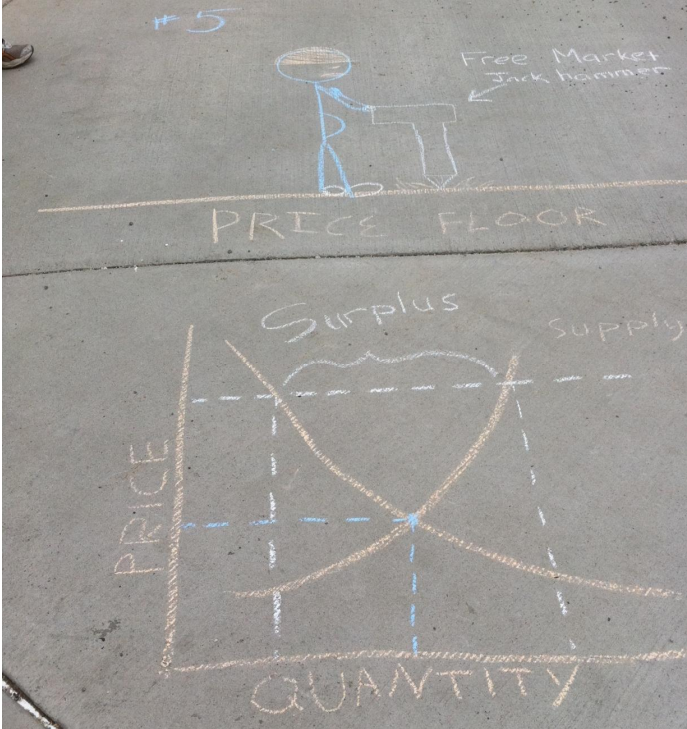 #5
Free Market
Jack hammer
PRICE FLOOR
Surplus
Supply
PRICE
QUANTITY